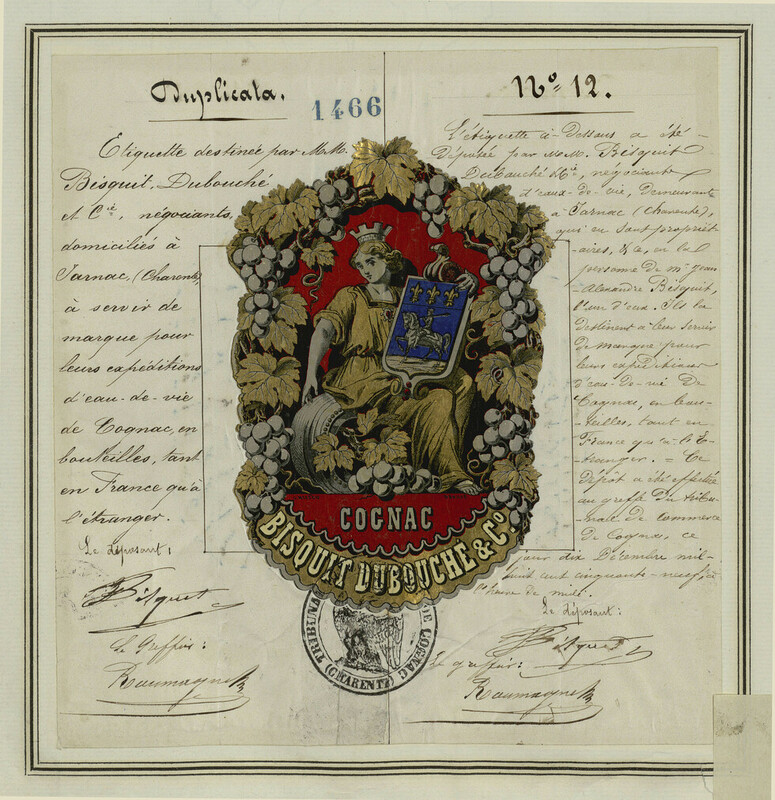 Duplicata.
1466
Nº 12.
Etiquette destinée par M.M.
Bisquit, Dubouché
et Cie, négociants,
domiciliés à
Jarnac, (Charente)
à servir de
marque pour
leurs expéditions
d'eau-de-vie
de Cognac, en
bouteilles, tant
en France qu'à
l'étranger.
Le déposant,
Bisquit
Le Greffier:
L'étiquette ci-dessus a été
Déposée par M.M. Bisquit
Dubouché & Cie, négociants
d'eaux-de-vie, demeurant
à Jarnac (Charente),
qui en sont propriét-
aires, & ce, en la
personne de Mr Jean
Alexandre Bisquit,
l'un d'eux. Ils la
destinent à leur servir
de marque pour
leurs expéditions
d'eau-de-vie de
Cognac, en bou-
teilles, tant en
France qu'à l'E-
tranger. = Ce
Dépôt a été effectué
au greffe du tribu-
nal de commerce
de Cognac, ce
jour dix Décembre mil-
huit cent cinquante-neuf, à
l'heure de midi.
Le déposant:
Bisquit
Le greffier:
COGNAC
BISQUIT DUBOUCHE & Co
TRIBUNAL DE COGNAC
(CHARENTE)